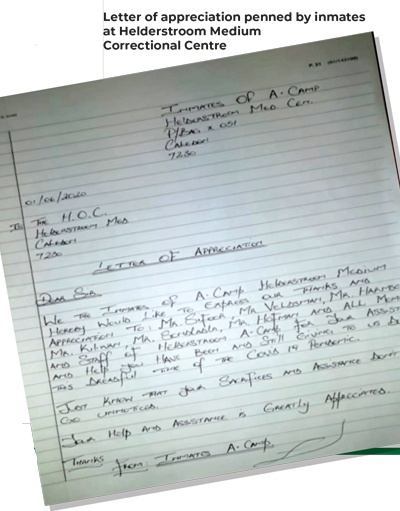 Letter of appreciation penned by inmates
at Helderstroom Medium
Correctional Centre
INMATES OF A. CAMP
HELDERSTROOM MED. CEN.
P/BAG X 051
CALEDON
7230
01/06/2020
TO THE H.O.C.
HELDERSTROOM MED
CALEDON
7230
LETTER OF APPRECIATION
DEAR SIR
WE THE INMATES OF A. CAMP HELDERSTROOM MEDIUM
HEREBY WOULD LIKE TO EXPRESS OUR THANKS AND
APPRECIATION TO: MR. MR. VELDSMAN, MR.
MR. MR. MR. HOFMAN AND ALL
AND STAFF OF HELDERSTROOM A-CAMP FOR YOUR
AND HELP YOU HAVE BEEN AND STILL GIVING TO US
THIS DREADFUL TIME OF THE COVID 19 PANDEMIC.
JUST KNOW THAT YOUR SACRIFICES AND ASSISTANCE DON'T
GO UNNOTICED.
YOUR HELP AND ASSISTANCE IS GREATLY APPRECIATED.
THANKS
FROM: INMATES A. CAMP